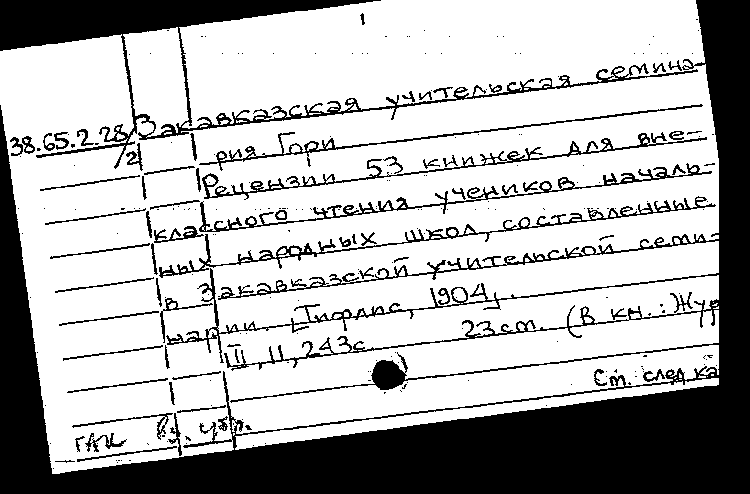 1
38.65.2.28/2 Закавказская учительская семина-
рия. Гори
Рецензии 53 книжек для вне-
классного чтения учеников началь-
ных народных школ, составленные
в Закавказской учительской семи-
нарии. [Тифлис, 1904].
III, II, 243 с. 23 см. (В кн.: Жур
См. след ка